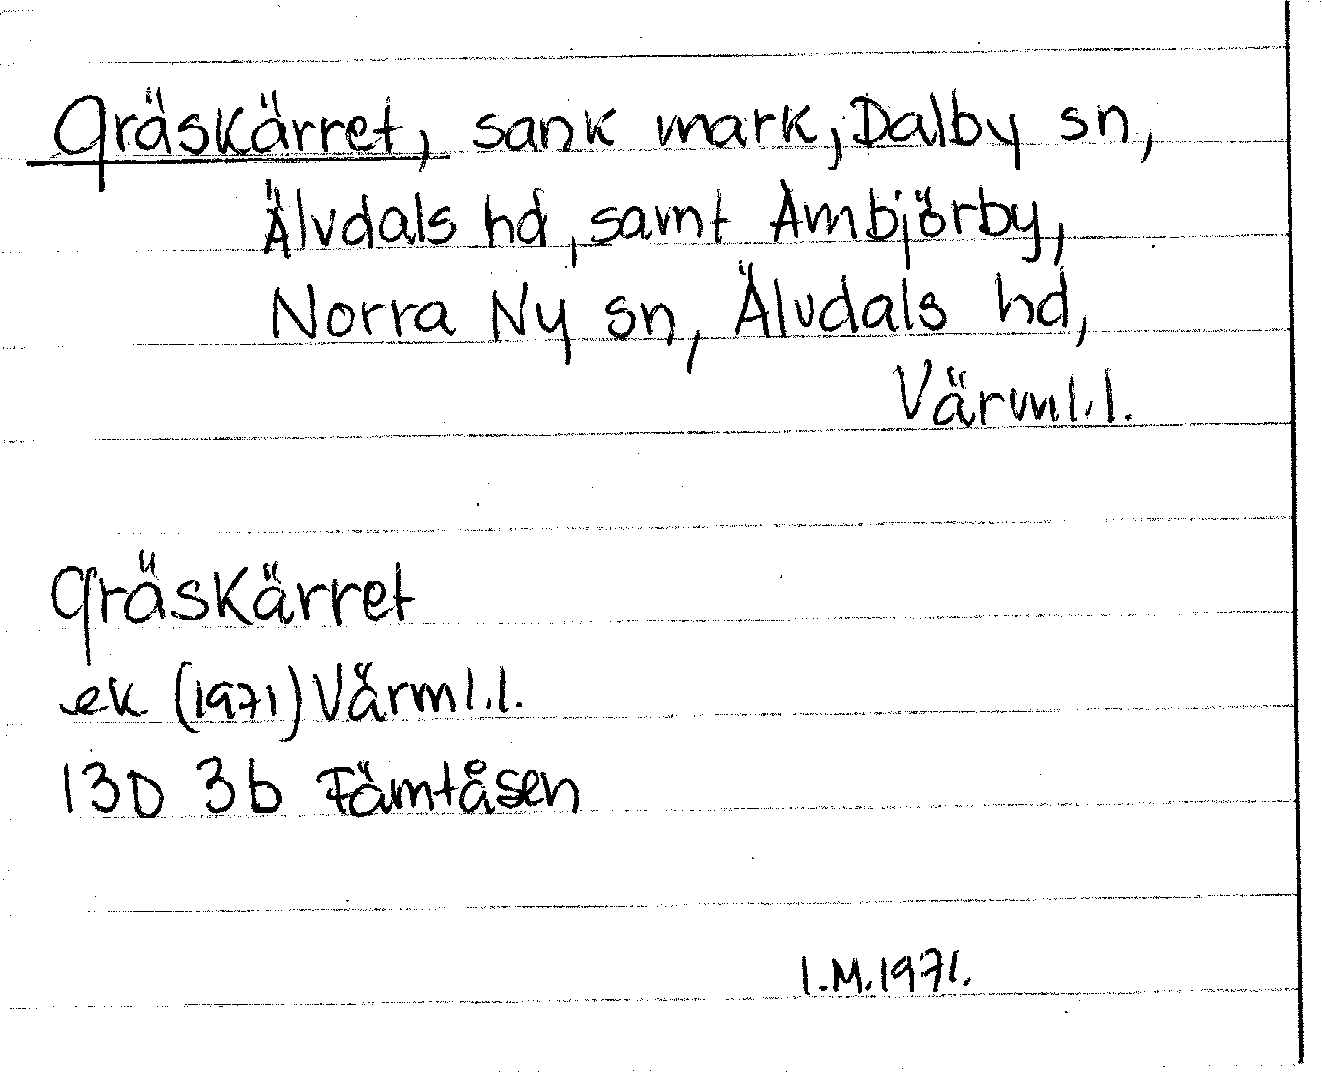 Gräskärret, sank mark, Dalby sn,
Älvdals hd, samt Ambjörby,
Norra Ny sn, Älvdals hd,
Värml.l.
Gräskärret
ek (1971) Värml.l.
13D 3b Fämtåsen
I.M.1971.